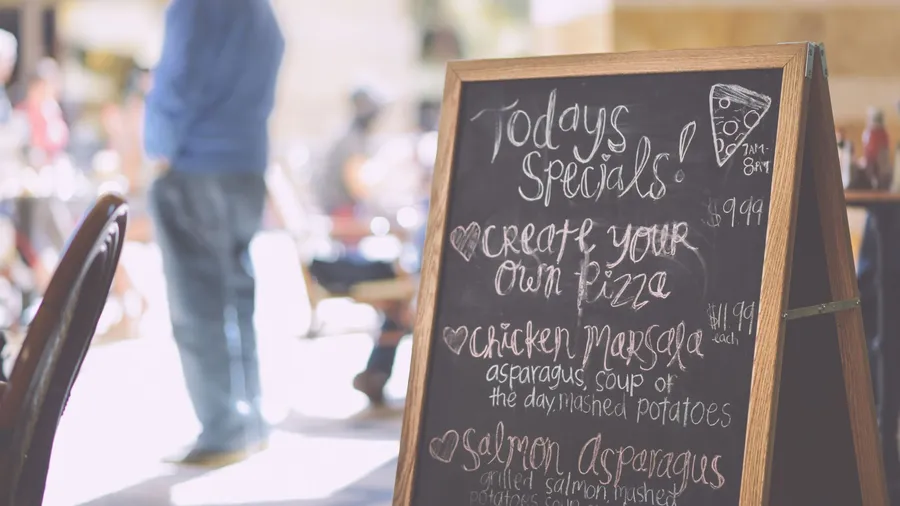 Todays
Specials!
7AM-
8PM
$9.99
Create your
own Pizza
$11.99
each
chicken Marsala
asparagus, soup of
the day, mashed potatoes
Salmon Asparagus
grilled salmon, mashed
potatoes soup